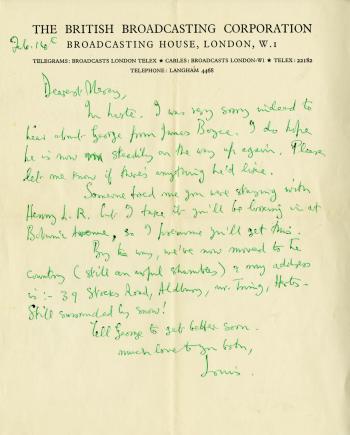 THE BRITISH BROADCASTING CORPORATION
BROADCASTING HOUSE, LONDON, W.1
TELEGRAMS: BROADCASTS LONDON TELEX ★ CABLES: BROADCASTS LONDON-W1 ★ TELEX: 22182
TELEPHONE: LANGHAM 4468
Feb. 16
Dearest Mercy,
In haste. I was very sorry indeed to
hear about George from James Boyce. I do hope
he is now steadily on the way up again. Please
let me know if there's anything he'd like.
Someone told me you were staying with
Henry L. R. but I take it you'll be looking in at
Avenue, so I presume you'll get this.
By the way, we've now moved to the
country (still an awful shambles) & my address
is :- 39 Stocks Road, Aldbury, nr. Tring, Herts.
Still surrounded by snow!
Tell George to get better soon.
much love to you both,
Louis.